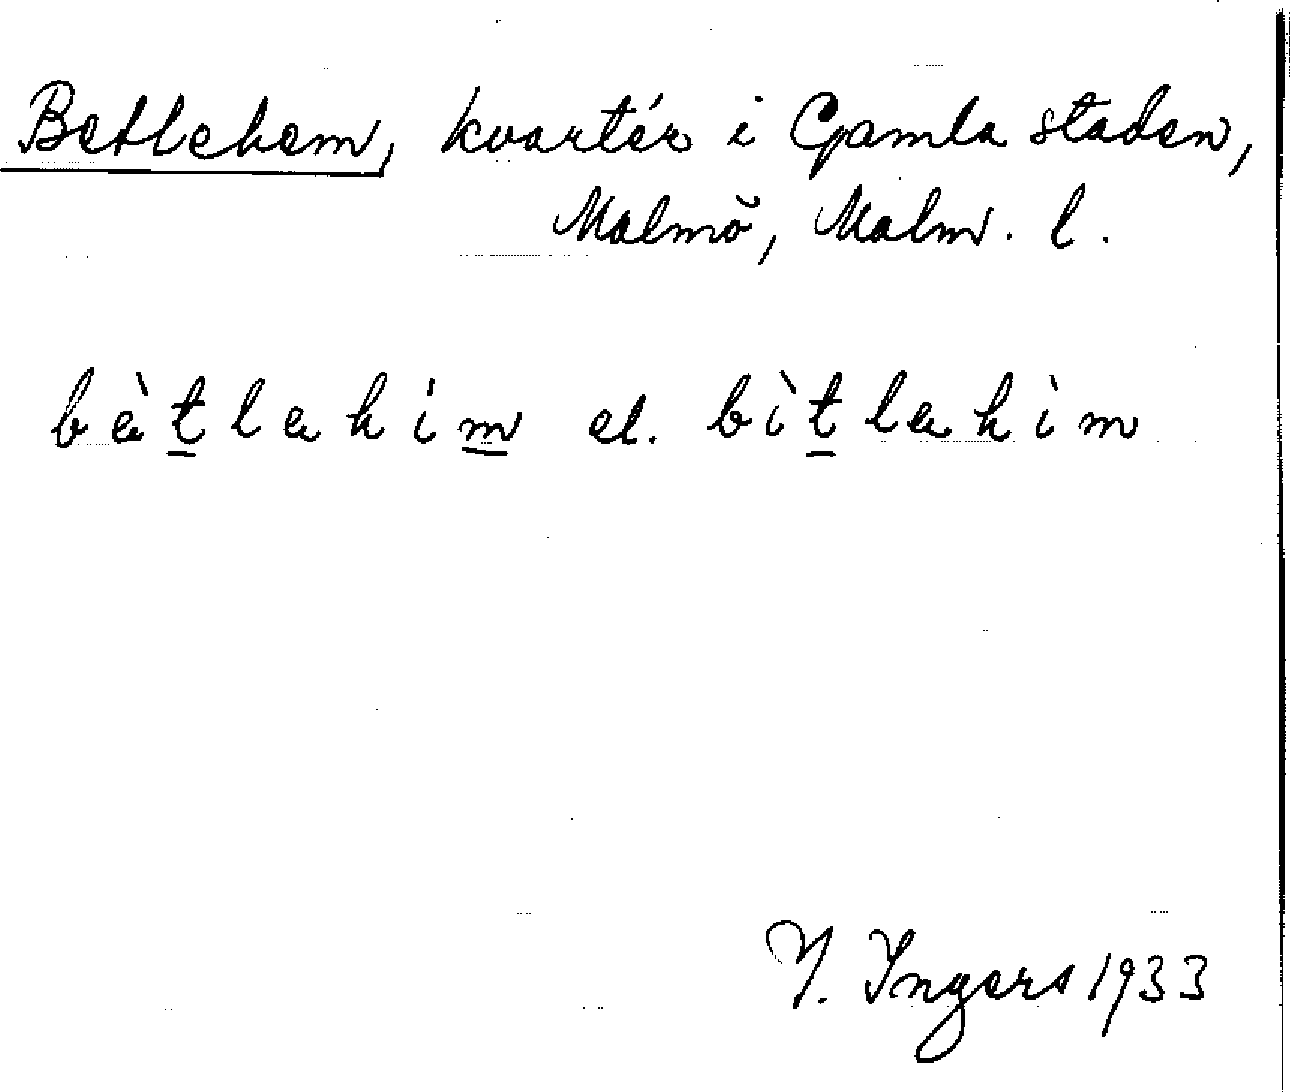 Betlehem, kvartér i Gamla staden,
Malmö, Malm. l.
bètlehim el. bìtlehìm
I. Ingers 1933